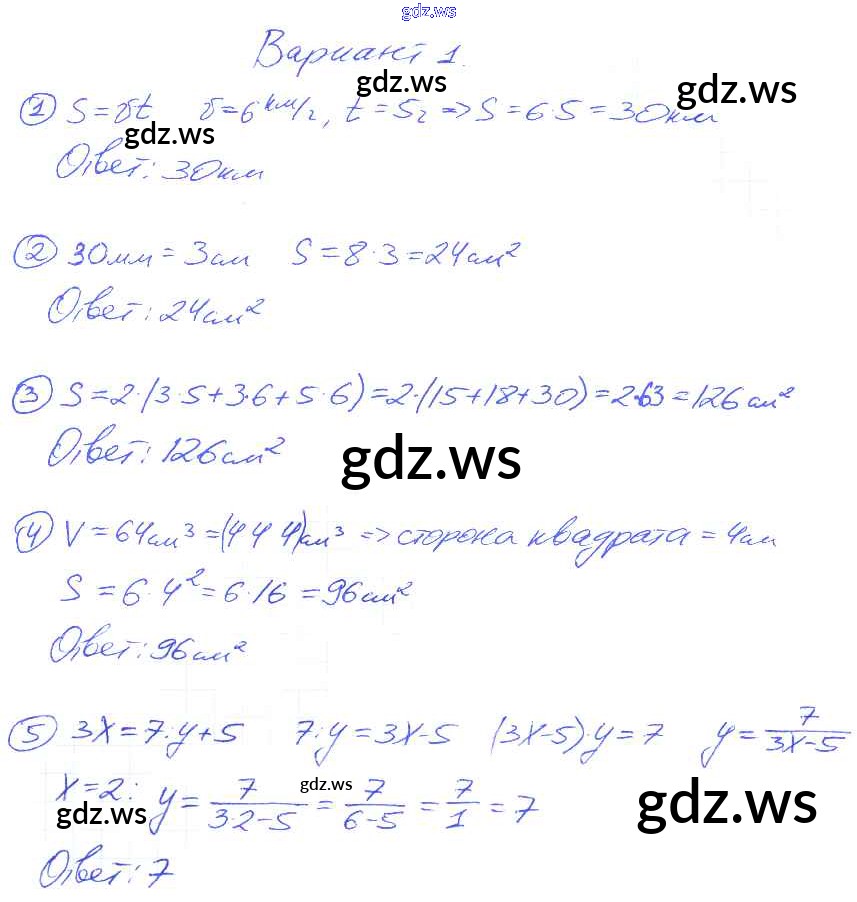 gdz.ws
Вариант 1.
gdz.ws
gdz.ws
① S=vt v=6 км/г, t=5г => S=6·5=30км
gdz.ws
Ответ: 30км
② 30мм=3см S=8·3=24см²
Ответ: 24см²
③ S=2·(3·5+3·6+5·6)=2·(15+18+30)=2·63=126см²
Ответ: 126см²
gdz.ws
④ V=64см³=(4 4 4)см³ => сторона квадрата=4см
S=6·4²=6·16=96см²
Ответ: 96см²
⑤ 3x=7:y+5 7:y=3x-5 (3x-5)·y=7 y=7/(3x-5)
gdz.ws
x=2: y=7/(3·2-5)=7/(6-5)=7/1=7
gdz.ws
gdz.ws
Ответ: 7